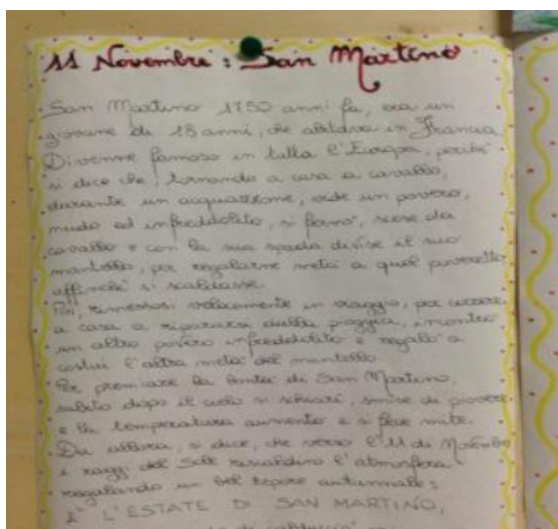 11 Novembre : San Martino
San Martino 1750 anni fa, era un
giovane di 18 anni, che abitava in Francia
Divenne famoso in tutta l'Europa, perché
si dice che, tornando a casa a cavallo,
durante un acquazzone, vide un povero,
nudo ed infreddolito, si fermò, scese da
cavallo e con la sua spada divise il suo
mantello, per regalarne metà a quel poveretto
affinché si scaldasse.
Poi, rimessosi velocemente in viaggio, per correre
a casa a ripararsi dalla pioggia, incontrò
un altro povero infreddolito e regalò a
costui l'altra metà del mantello
Per premiare la bontà di San Martino,
subito dopo il cielo si schiarì, smise di piovere
e la temperatura aumentò e si fece mite.
Da allora, si dice, che verso l'11 di Novembre
i raggi del Sole riscaldino l'atmosfera
regalando un bel tepore autunnale:
E' L'ESTATE DI SAN MARTINO,